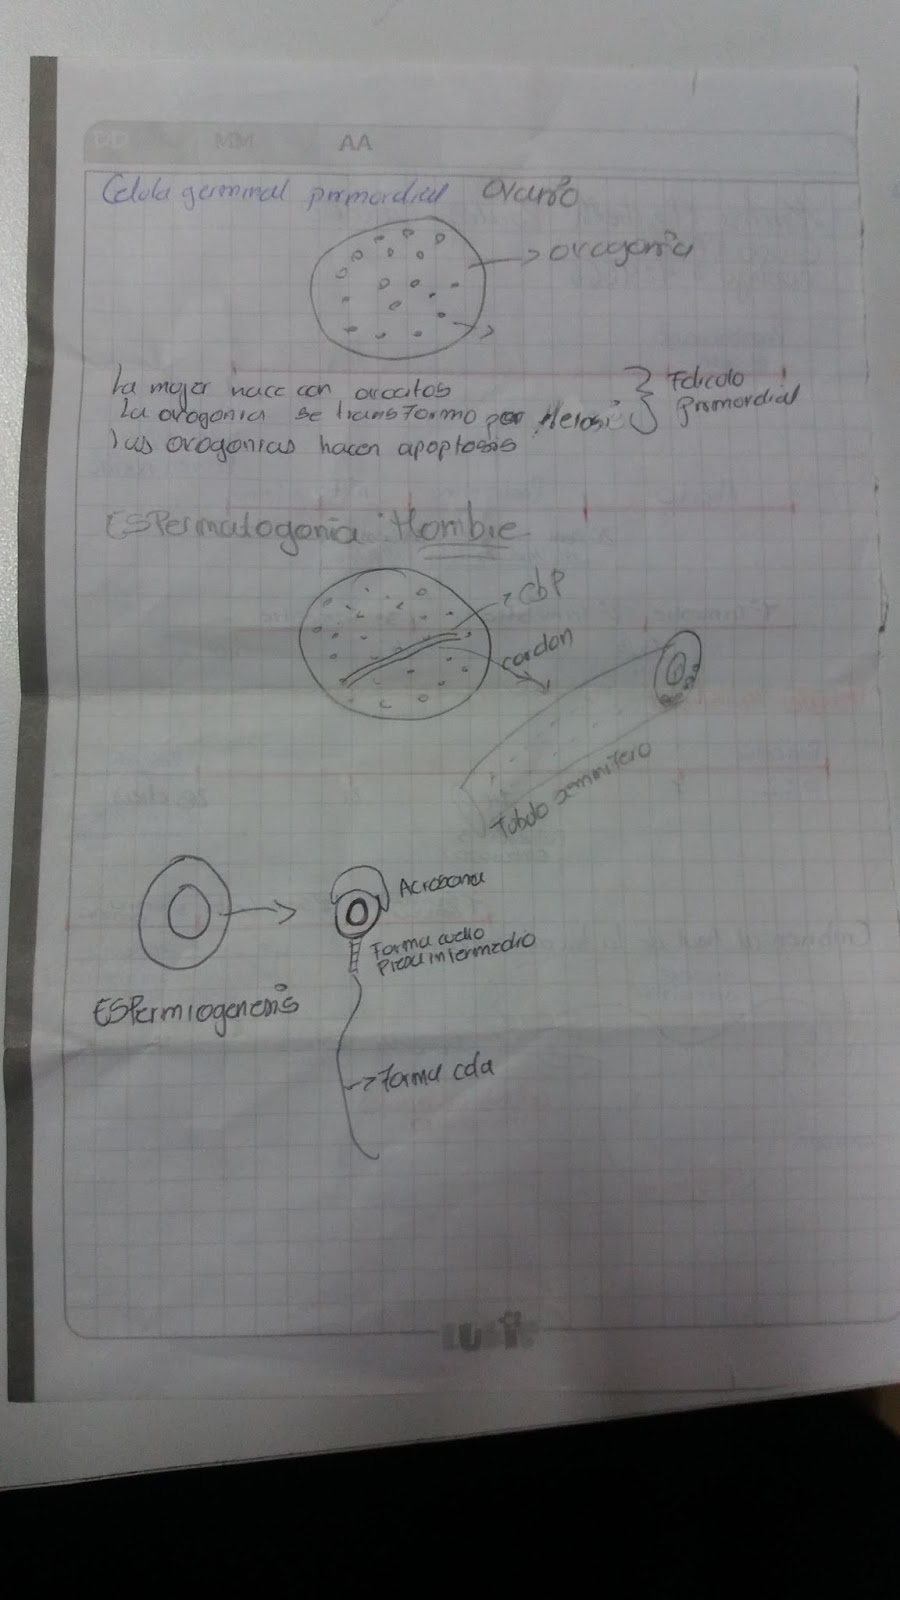 DD MM AA
Celula germinal primordial ovario
ovogonia
La mujer nace con ovocitos
La ovogonia se transformo por Meiosis
las ovogonias hacen apoptosis
Folicolo
primordial
ESPermatogonia Hombre
cordon
Tubulo seminifero
Acrosoma
Forma cuello
Pieza intermedio
ESPermiogenesis
Forma cola